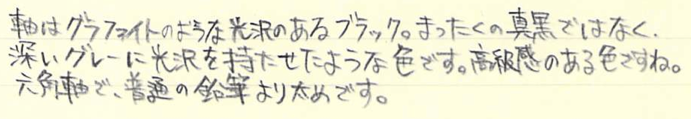 軸はグラファイトのような光沢のあるブラック。まったくの真黒ではなく、
深いグレーに光沢を持たせたような色です。高級感のある色ですね。
六角軸で、普通の鉛筆より太めです。